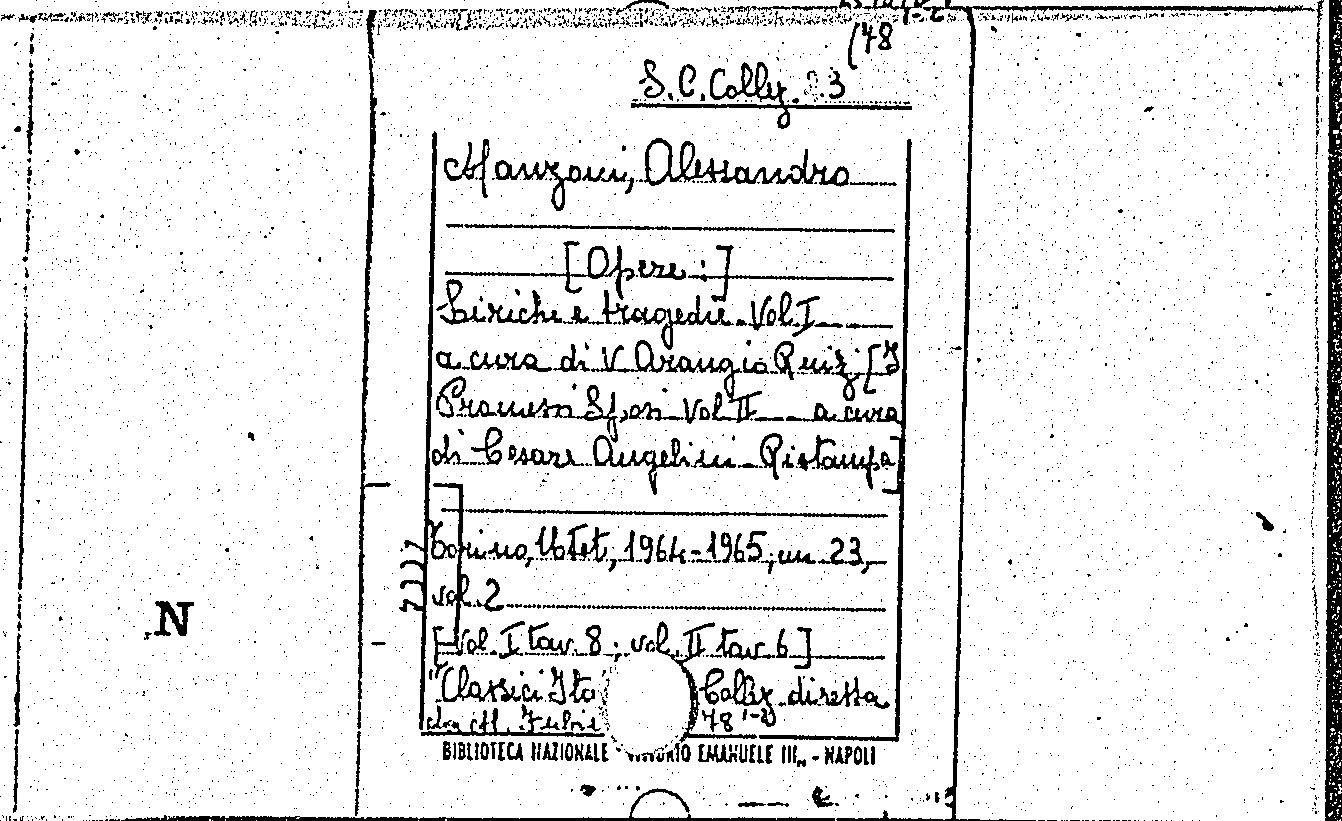 (48
S.C. Collez. 23
Manzoni, Alessandro
[Opere:]
Liriche e tragedie. Vol I
a cura di V Arangio Ruiz [I
Promessi Sposi Vol II a cura
di Cesare Angelini - Ristampa]
Torino, Utet, 1964-1965, cm. 23,
vol. 2
[Vol. I tav. 8; vol. II tav. 6]
"Classici Ita Collez. diretta
48 1-2)
BIBLIOTECA NAZIONALE EMANUELE III - NAPOLI
N